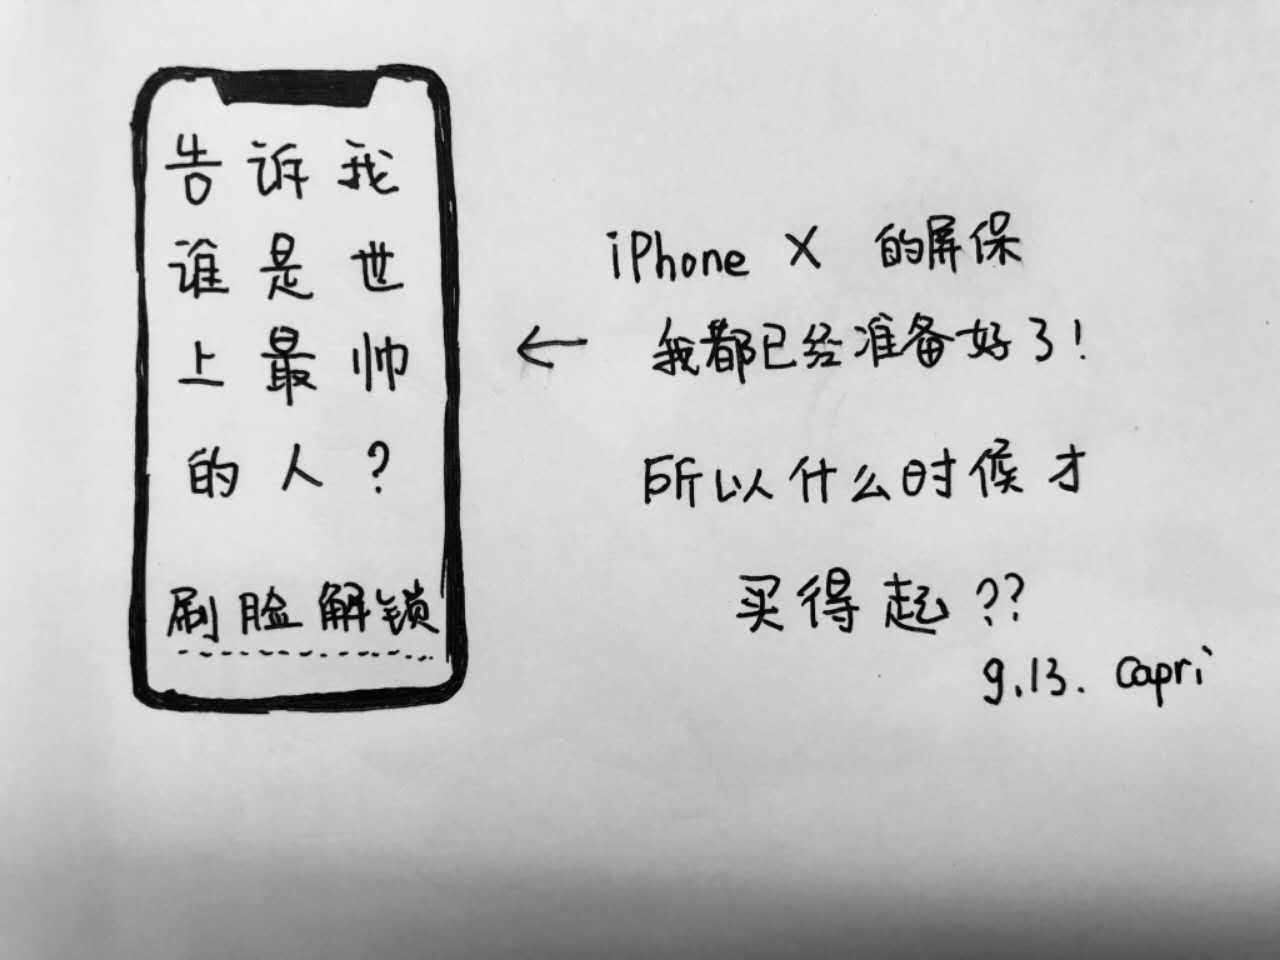 告诉我
谁是世
上最帅
的人?
刷脸解锁
iPhone X 的屏保
← 我都已经准备好了!
所以什么时候才
买得起??
9.13. Capri